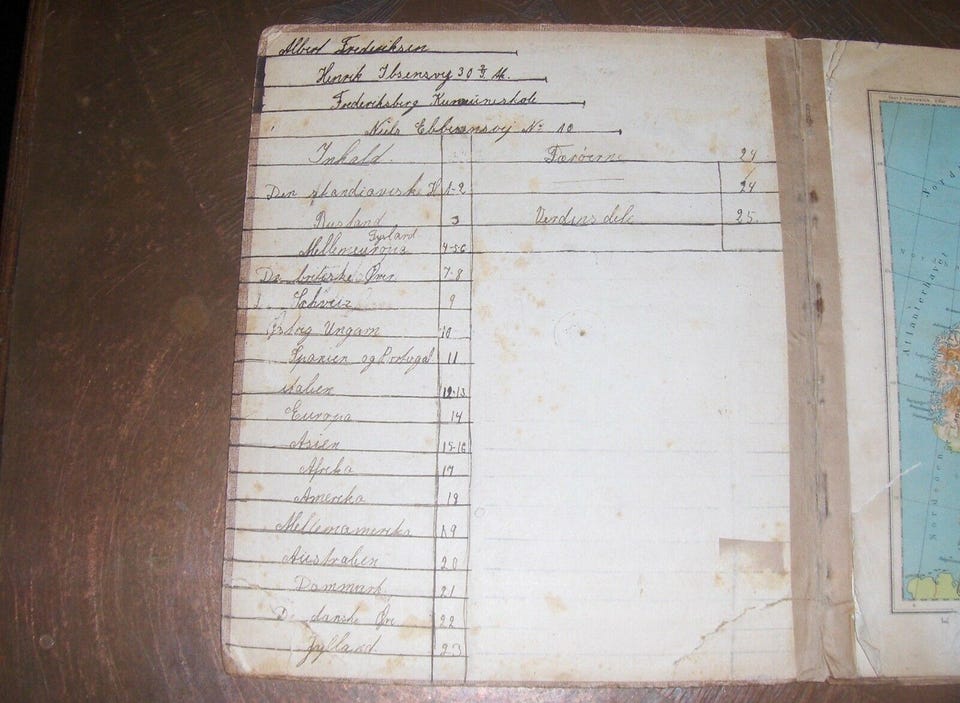 Albert Frederiksen
Henrik Ibsensvej 30
Frederiksberg Kummuneskole
Niels Ebbesensvej No 10
Inhald.
Den skandiaviske H 1-2
Rusland 3
Tyskland
Melleneuropa 4-5-6
De briteske Øer 7-8
Schveiz 9
og Ungarn 10
Spanien og Portugal 11
italien 12-13
Europa 14
Asien 15-16
Afrika 17
Amerika 18
Mellemamerika 19
Australien 20
Dammark 21
D. danske Øer 22
Jylland 23
Færøerne 24
24
Verdensdele 25.
Atlanterhavet